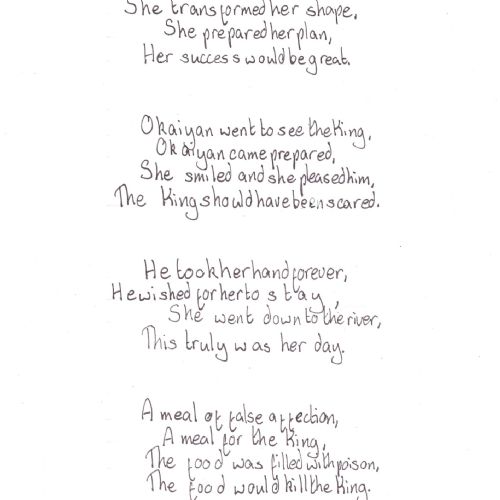 She transformed her shape,
She prepared her plan,
Her success would be great.
Okaiyan went to see the King,
Okaiyan came prepared,
She smiled and she pleased him,
The King should have been scared.
He took her hand forever,
He wished for her to stay,
She went down to the river,
This truly was her day.
A meal of false affection,
A meal for the King,
The food was filled with poison,
The food would kill the King.